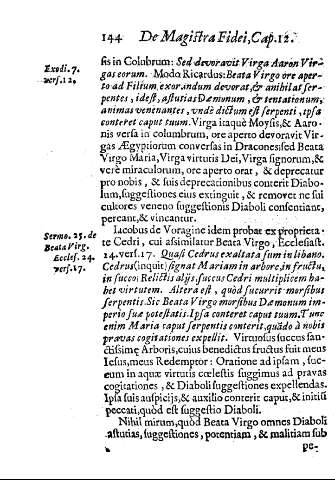 144 De Magistra Fidei, Cap. 12.
sis in Colubrum: Sed devoravit Virga Aaron Vir-
Exodi. 7.
vers. 12.
gas eorum. Modo Ricardus: Beata Virgo ore aper-
to ad Filium exorandum devorat, & anihilat ser-
pentes, idest, astutias Dæmonum, & tentationum,
animas venenantes, undè dictum est serpenti, ipsa
conteret caput tuum. Virga itaquè Moysis, & Aaro-
nis versa in columbrum, ore aperto devoravit Vir-
gas Ægyptiorum conversas in Dracones: sed Beata
Virgo Maria, Virga virtutis Dei, Virga signorum, &
verè miraculorum, ore aperto orat, & deprecatur
pro nobis, & suis deprecationibus conterit Diabo-
lum, suggestiones eius extinguit, & removet ne sui
cultores veneno suggestionis Diaboli consentiant,
pereant, & vincantur.
Sermo. 15. de
Beata Virg.
Eccles. 24.
vers. 17.
Iacobus de Voragine idem probat ex proprieta-
te Cedri, cui assimilatur Beata Virgo, Ecclesiast.
24. vers. 17. Quasi Cedrus exaltata sum in libano.
Cedrus (inquit) signat Mariam in arbore, in fructu,
in succo: Relictis alijs, succus Cedri multiplicem ha-
bet virtutem. Altera est, quòd fuccurrit morsibus
serpentis. Sic Beata Virgo morsibus Dæmonum im-
perio suæ potestatis. Ipsa conteret caput tuum. Tunc
enim Maria caput serpentis conterit, quàdo à nobis
pravas cogitationes expellit. Virtuosus succus san-
ctissimæ Arboris, cuius benedictus fructus fuit meus
Iesus, meus Redemptor: Oratione ad ipsam, suc-
cum in aquæ virtutis cœlestis suggimus ad pravas
cogitationes, & Diaboli suggestiones expellendas.
Ipsa suis auspicijs, & auxilio conterit caput, & initiū
peccati, quòd est suggestio Diaboli.
Nihil mirum, quòd Beata Virgo omnes Diaboli
astutias, suggestiones, potentiam, & malitiam sub
pe-